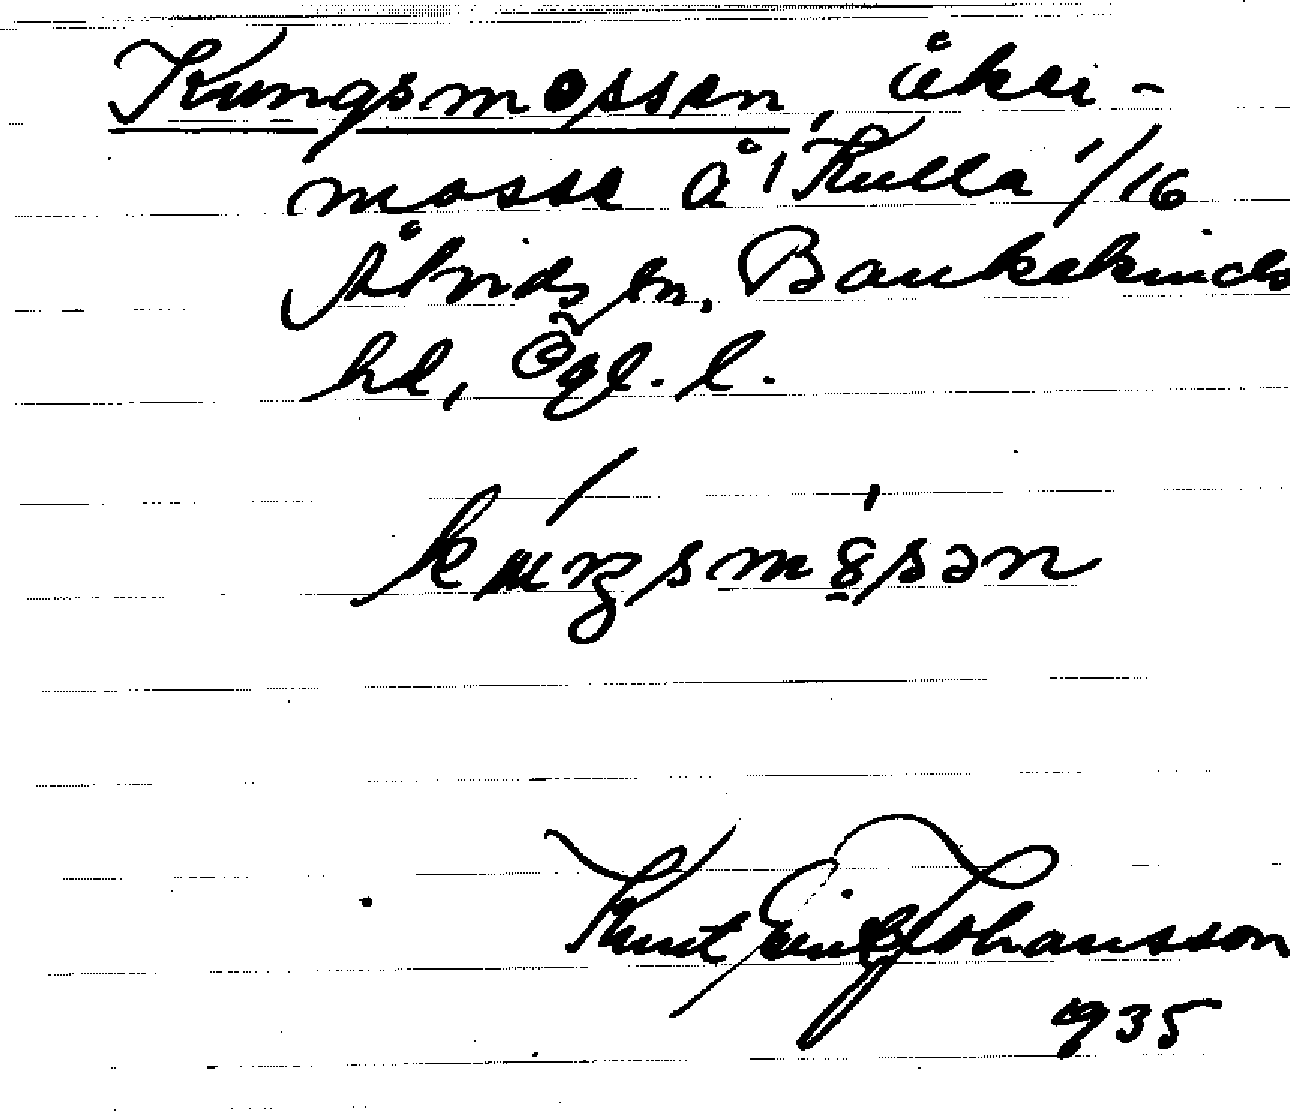 Kungsmossen, åker-
mosse å Kulla 1/16
Åtvids sn, Bankekinds
hd, Ögl. l.
Knut Erik Johansson
935